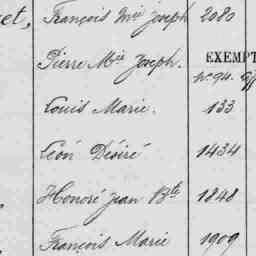 et, François Mie Joseph 2080
Pierre Mie Joseph. EXEMPT
No 94.
Louis Marie. 133
Léon Désiré 1434
Honoré Jean Bte 1848
François Marie 1909